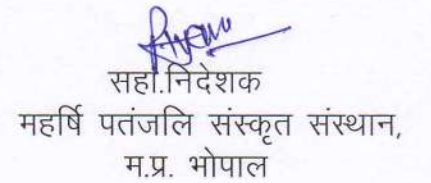 सहा.निदेशक
महर्षि पतंजलि संस्कृत संस्थान,
म.प्र. भोपाल